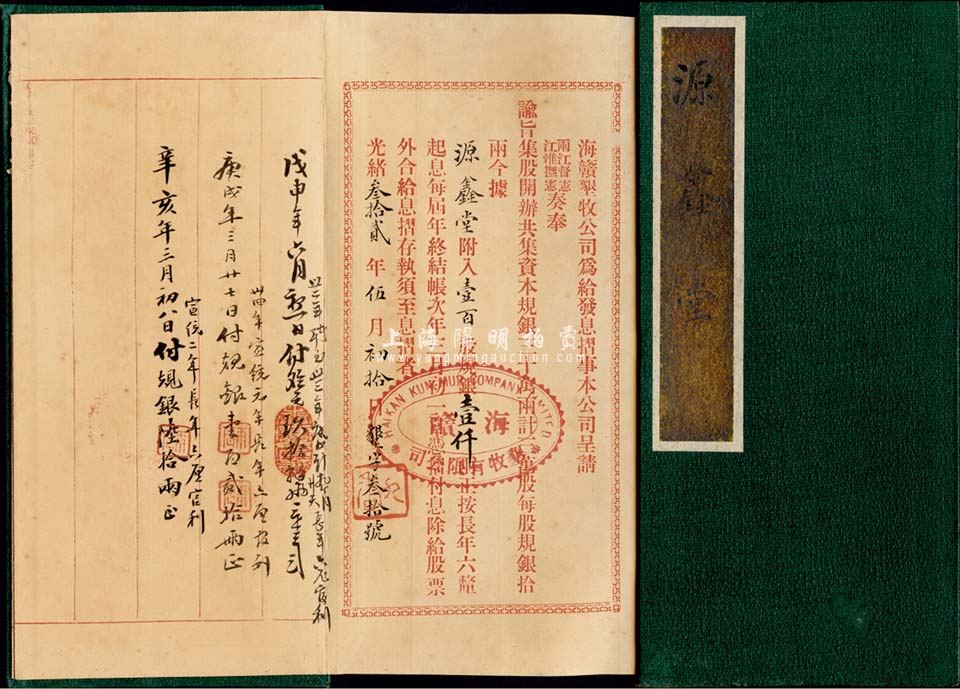 源鑫堂
海贛墾牧公司爲給發息摺事本公司呈請
兩江督憲
江淮撫憲
奏奉
諭旨集股開辦共集資本規銀三十萬兩計三萬股每股規銀拾
兩今據
源鑫堂附入壹百股規銀壹仟兩正按長年六釐
起息每屆年終結帳次年三月初一日憑摺付息除給股票
外合給息摺存執須至息摺者
光緒叁拾貳年伍月初拾日墾字叁拾號
HAIKAN KUNMUR COMPANY LIMITED
海贛
墾牧有限公司
戊申年
庚戌年三月廿七日付規銀壹百貳拾兩正
卅四年宣統元年長年六厘官利
辛亥年三月初八日付規銀陸拾兩正
宣統二年長年六厘官利
上海陽明拍賣
www.yangmingauction.com